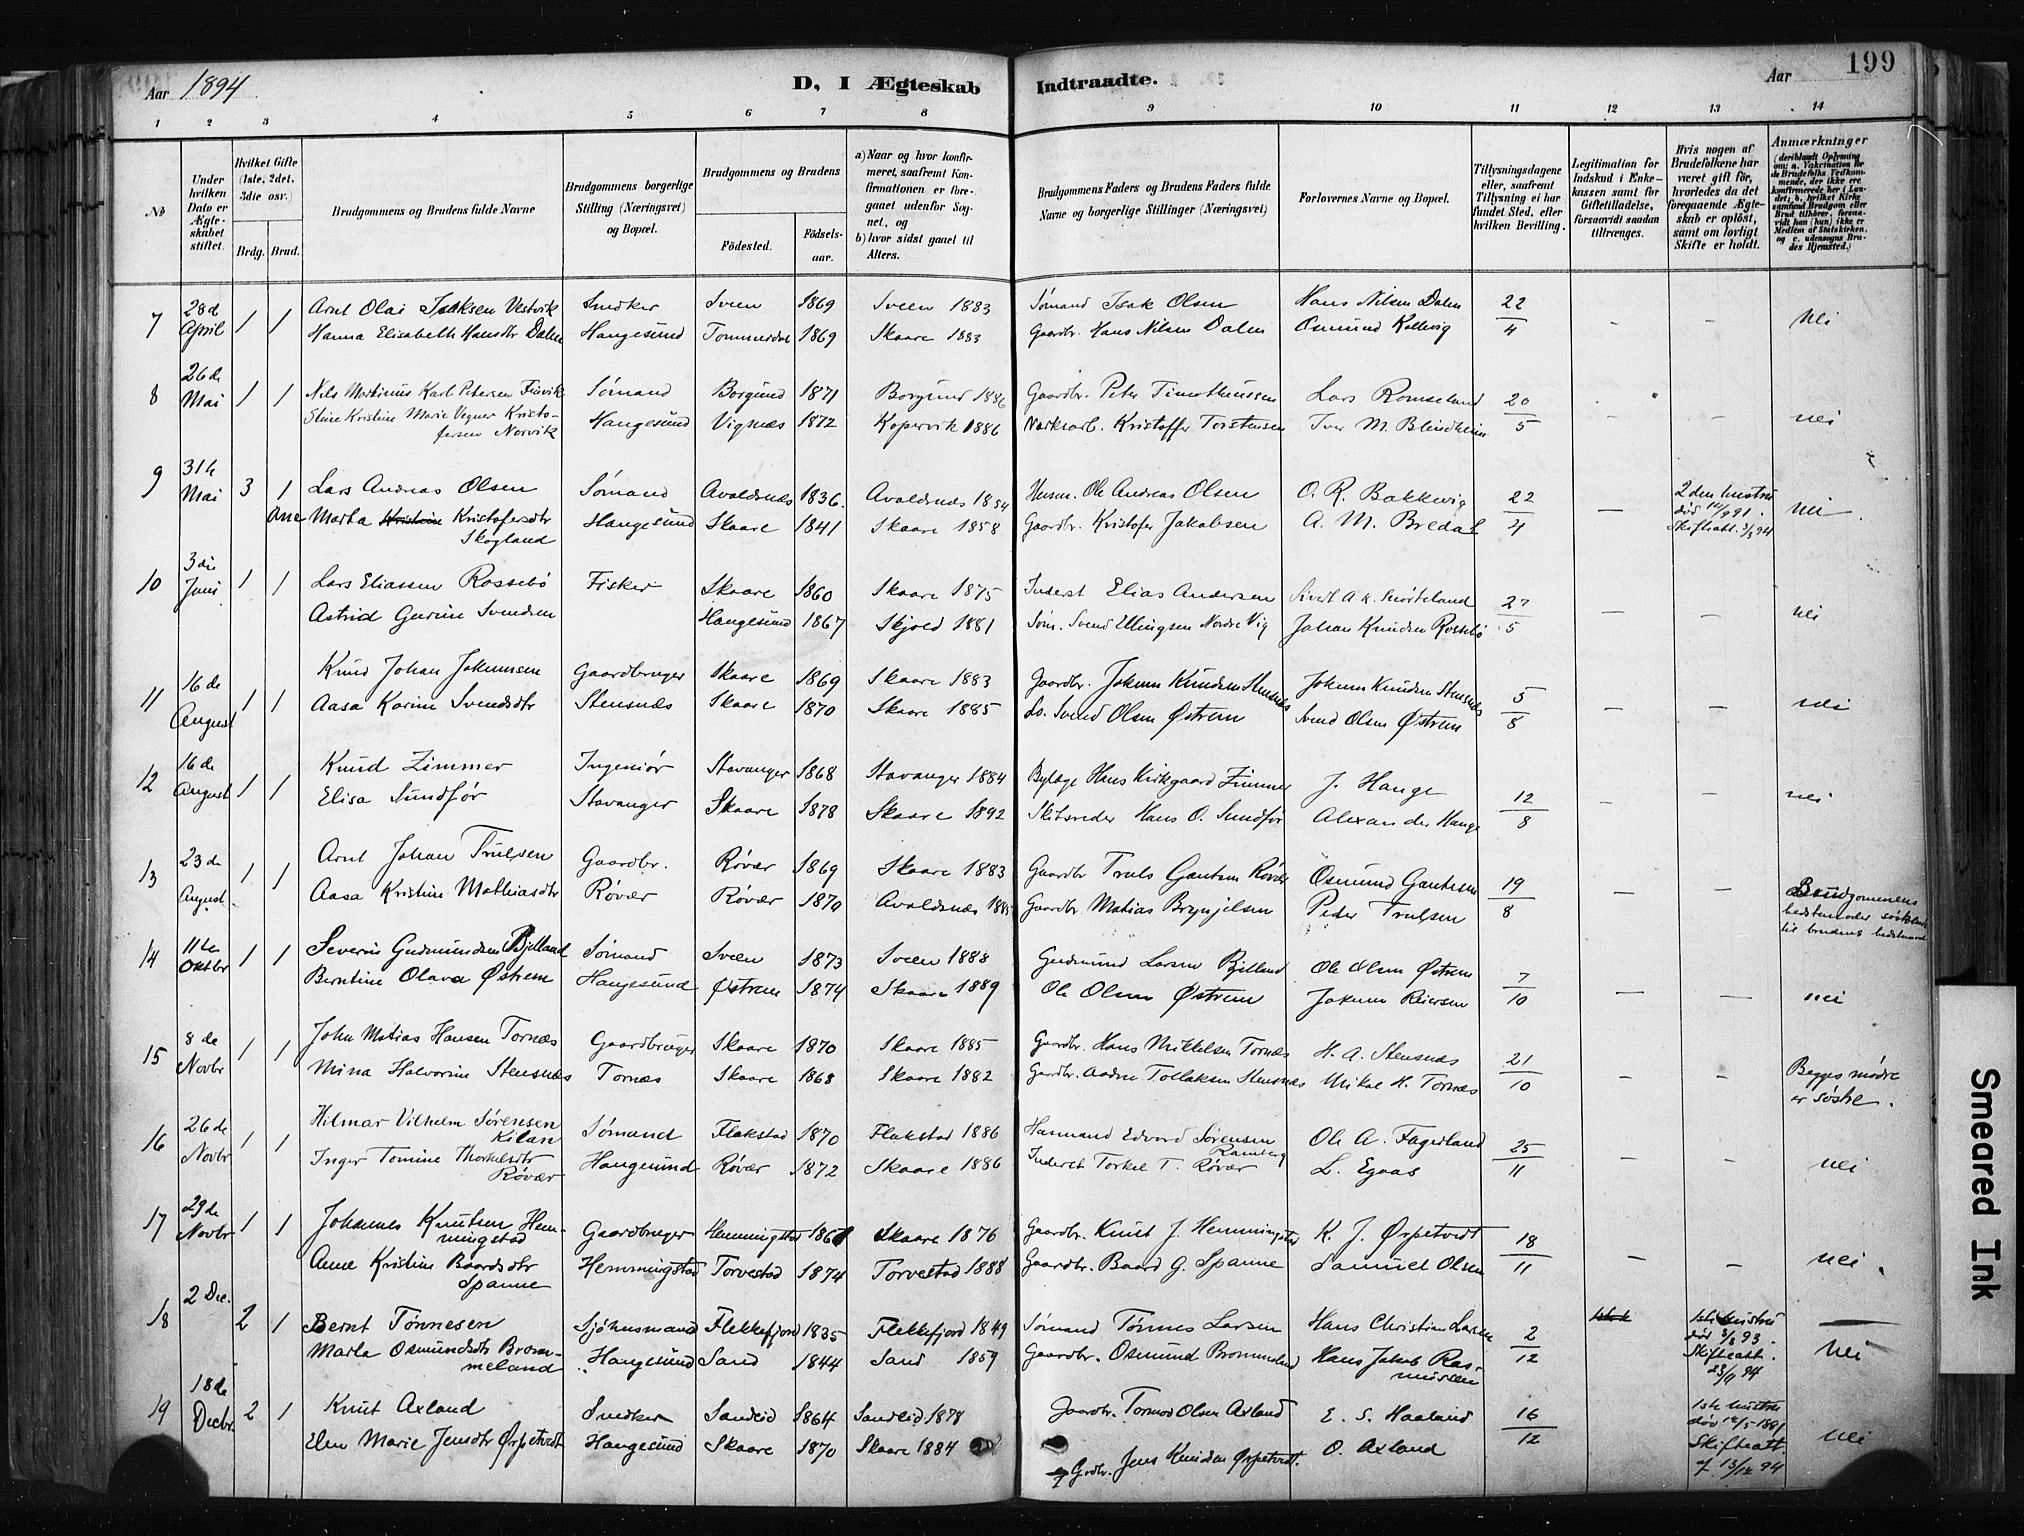 Aar 1894
D, I Ægteskab Indtraadte.
Aar 199
1 2 3 4 5 6 7 8 9 10 11 12 13 14
No
Under hvilken Dato er Ægteskabet stiftet.
Hvilket Gifte (1ste, 2det, 3die osv.)
Brdg. Brud.
Brudgommens og Brudens fulde Navne
Brudgommens borgerlige Stilling (Næringsvei) og Bopæl.
Brudgommens og Brudens
Fødested.
Fødselsaar.
a) Naar og hvor konfirmeret, saafremt Konfirmationen er foregaaet udenfor Sognet, og
b) hvor sidst gaaet til Alters.
Brudgommens Faders og Brudens Faders fulde Navne og borgerlige Stillinger (Næringsvei)
Forlovernes Navne og Bopæl.
Tillysningsdagene eller, saafremt Tillysning ei har fundet Sted, efter hvilken Bevilling.
Legitimation for Indskud i Enkekassen samt for Giftetilladelse, forsaavidt saadan tiltrænges.
Hvis nogen af Brudefolkene har været gift før, hvorledes da det foregaaende Ægteskab er opløst, samt om lovligt Skifte er holdt.
Anmærkninger
(deriblandt Oplysning om: a. Vakcination for de Brudefolks Vedkommende, der ikke ere konfirmerede her i Landet; b. hvilket Kirkesamfund Brudgom eller Brud tilhører, forsaavidt han (hun) ikke er Medlem af Statskirken, og c. udensogns Brudes Hjemsted.)
7 28d April 1 1 Arnt Olai Isaksen Vestvik Snedker Sveen 1869 Sveen 1883 Sømand Isak Olsen Hans Nilsen Dalen 22/4 - - nei
Hanna Elisabeth Hansdtr Dalen Haugesund Tommerdal 1869 Skaare 1883 Gaardbr. Hans Nilsen Dalen Osmund Kallevig
8 26de Mai 1 1 Nils Martinius Karl Petersen Finvik Sømand Borgund 1871 Borgund 1886 Gaardbr. Peter Timotheussen Lars Romseland 20/5 - - nei
Stine Kristine Marie Vegner Kristofersen Norvik Haugesund Vigsnæs 1872 Kopervik 1886 Værksarb. Kristoffer Torstensen Iver M. Blindheim
9 31te Mai 3 1 Lars Andreas Olsen Sømand Avaldsnæs 1836. Avaldsnæs 1854 Husm. Ole Andreas Olsen O. R. Bakkevig 22/4 - 2den hustru død 14/9 91. Skifteatt. 3/3 94 nei.
Ane Marta Kristine Kristofersdtr Skogland Haugesund Skaare 1841 Skaare 1858 Gaardbr. Kristofer Jakobsen A. M. Bredal
10 3die Juni 1 1 Lars Eliassen Rossebø Fisker Skaare 1860 Skaare 1875 Inderst Elias Andersen Sivert A. K. Smørteland 27/5 - - nei
Astrid Gurine Svendsen Haugesund 1867 Skjold 1881 Søm. Svend Ellingsen Nordre Vig Johan Knudsen Rossebø
11 16de August 1 1 Knud Johan Jokumsen Gaardbruger Skaare 1869 Skaare 1883 Gaardbr. Jokum Knudsen Stensnæs Jokum Knudsen Stensnæs 5/8 - - nei
Aasa Karine Svendsdtr Stensnæs Skaare 1870 Skaare 1885 Do. Svend Olsen Østrem Svend Olsen Østrem
12 16de August 1 1 Knud Zimmer Ingeniør Stavanger 1868 Stavanger 1884 Bylæge Hans Kirkgaard Zimmer J. Hauge 12/8 - - nei
Elisa Sundfør Stavanger Skaare 1878 Skaare 1892 Skibsreder Hans O. Sundfør Alexander Hauge
13 23de August. 1 1 Arnt Johan Trulsen Gaardbr. Røvær 1869 Skaare 1883 Gaardbr Truls Gautsen Røvær Osmund Gautesen 19/8 - - Brudgommens bedstemoder søskende til brudens bedstemoder
Aasa Kristine Mathiasdtr Røvær Røvær 1870 Avaldsnæs 1885 Gaardbr. Matias Brynjelsen Peder Trulsen
14 11te Oktbr 1 1 Severin Gudmundsen Bjelland Sømand Sveen 1873 Sveen 1888 Gudmund Larsen Bjelland Ole Olsen Østrem 7/10 - - nei
Berntine Olava Østrem Haugesund Østrem 1874 Skaare 1889 Ole Olsen Østrem Jokum Reiersen
15 8de Novbr 1 1 John Matias Hansen Tornæs Gaardbruger Skaare 1870 Skaare 1885 Gaardbr. Hans Mikkelsen Tornæs H. A. Stensnæs 21/10 - - Begges mødre er søstre.
Mina Halvorine Stensnæs Tornæs Skaare 1868 Skaare 1882 Gaardbr. Aadne Tollaksen Stensnæs Mikal H. Tornæs
16 26de Novbr 1 1 Hilmar Vilhelm Sørensen Kilan Sømand Flakstad 1870 Flakstad 1886 Havmand Edvard Sørensen Ramberg Ole A. Fagerland 25/11 - - nei
Inger Tomine Thorkelsdtr Røvær Haugesund Røvær 1872 Skaare 1886 Inderst Torkel T. Røvær L. Egaas
17 29de Novbr 1 1 Johannes Knutsen Hemmingstad Gaardbruger Hemmingstad 1861 Skaare 1876 Gaardbr. Knut J. Hemmingstad K. J. Ørpetvedt 18/11 - - nei.
Anne Kristine Baardsdtr Spanne Hemmingstad Torvestad 1874 Torvestad 1888 Gaardbr. Baard G. Spanne Samuel Olsen
18 2 Dec. 2 1 Bernt Tønnesen Sjøhusmand Flekkefjord 1835 Flekkefjord 1849 Sømand Tønnes Larsen Hans Christian Larsen 2/12 1ste hustru død 3/8 93. Skifteatt. 23/4 94 nei
Marta Osmundsdtr Brommeland Haugesund Sand 1844 Sand 1859 Gaardbr. Osmund Brommeland Hans Jakob Rasmussen
19 18de Decbr 2 1 Knut Axland Snedker Sandeid 1864 Sandeid 1878 Gaardbr. Tormod Olsen Axland E. S. Haaland 16/12 1ste hustru død 14/5 1891 Skifteatt af 13/12 94 nei
Elen Marie Jensdtr Ørpetvedt Haugesund Skaare 1870 Skaare 1884 Grdbr. Jens Knudsen Ørpetvedt. O. Axland
Smeared Ink